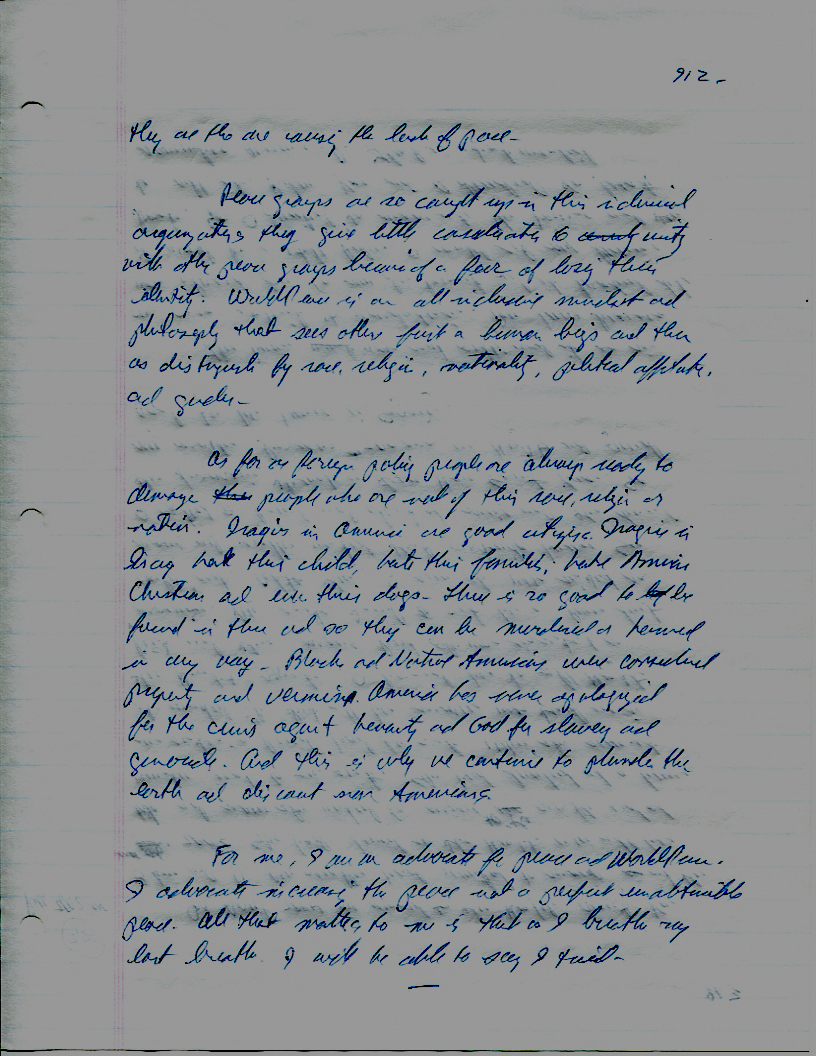 912.
they are the are causing the lack of peace-
Peace groups are so caught up in their individual
organizations they give little consideration to unity
with other peace groups because of a fear of losing their
identity. World love is an all inclusive mindset and
philosophy that sees others first as human beings and then
as distinguished by race, religion, nationality, political affiliation,
and gender-
As for our foreign policy people are always ready to
damage people who are not of their race, religion or
nation. Iraqis in America are good citizens. Iraqis in
Iraq hate their child, hate their families, hate American
Christians and even their dogs- There is no good to be
found in them and so they can be murdered or harmed
in any way- Blacks and Native Americans were considered
property and vermin. America has never apologized
for the crimes against humanity and God for slavery and
genocide. And this is why we continue to plunder the
earth and discount non Americans.
For me, I am an advocate for peace and World love.
I advocate increasing the peace not a perfect unattainable
peace. All that matters to me is that as I breath my
last breath I will be able to say I tried-